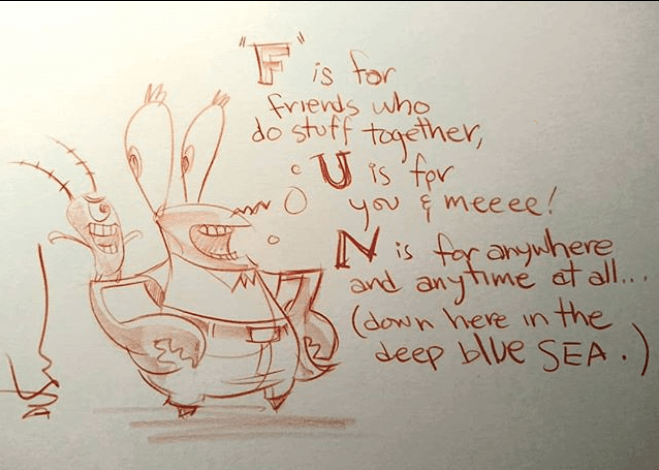 "F" is for
friends who
do stuff together,
U is for
you & meeee!
N is for anywhere
and anytime at all...
(down here in the
deep blue SEA.)